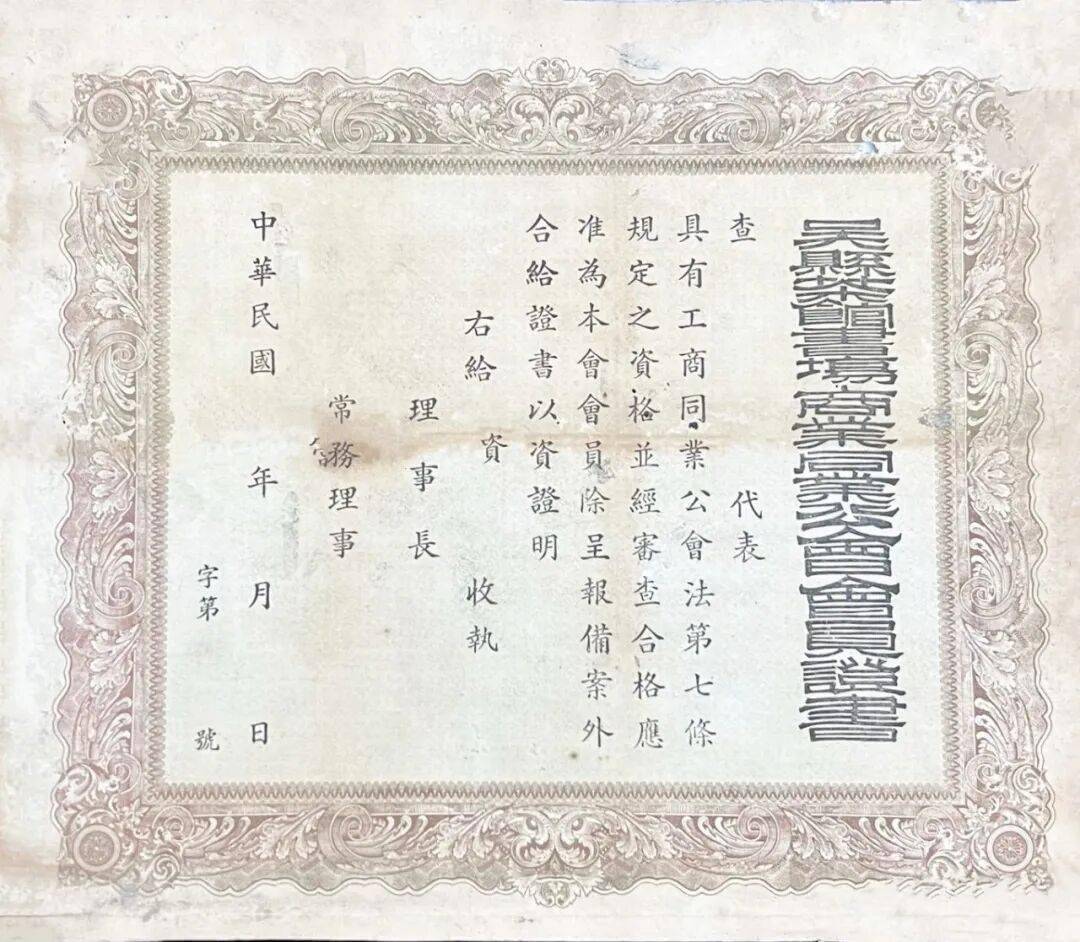 吳縣茶館書場商業同業公會會員證書
查　代表
具有工商同業公會法第七條
規定之資格並經審查合格應
准為本會會員除呈報備案外
合給證書以資證明
右給　資　收執
理事長
常務理事
中華民國　年　月　日
字第　號